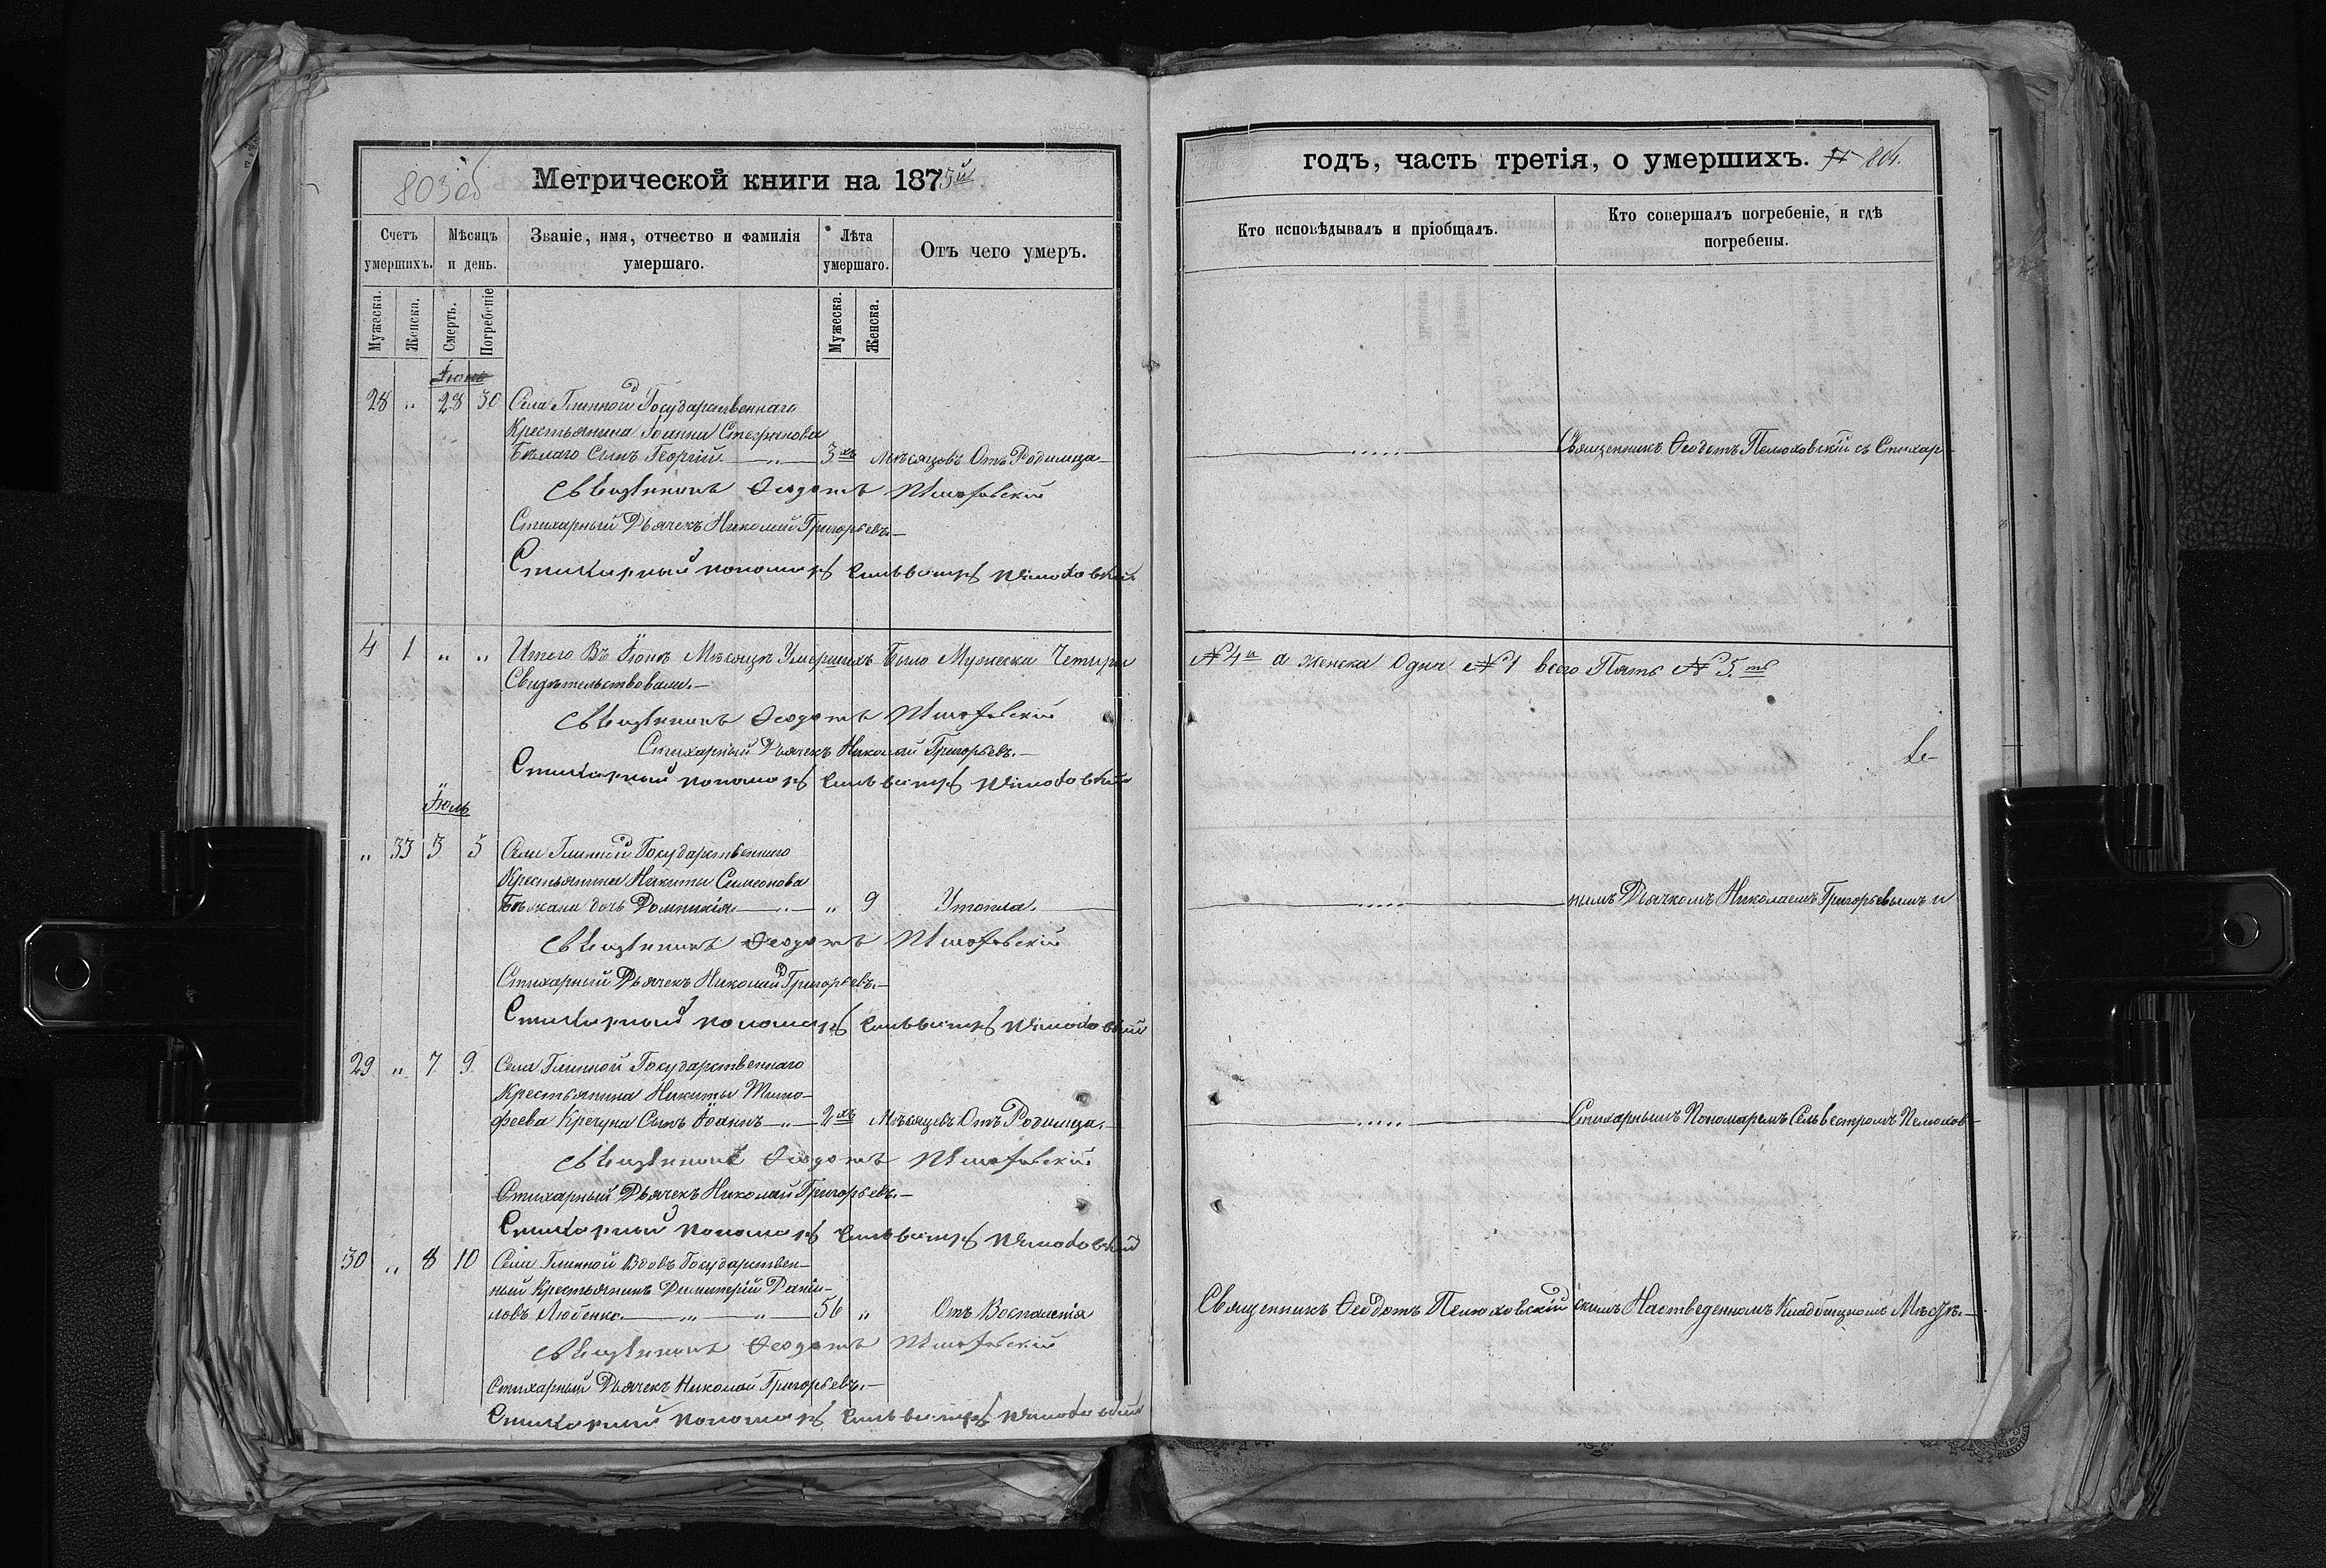 803 об
Метрической книги на 1875й
Счетъ умершихъ.
Мѣсяцъ и день.
Званіе, имя, отчество и фамилія умершаго.
Лѣта умершаго.
Отъ чего умер.
Мужеска.
Женска.
Смерть.
Погребеніе
Мужеска.
Женска.
Іюнь
28 " 28 30 Села Глинной Государственнаго
Крестьянина Іоанна Стефанова
Бѣлаго Сынъ Георгій " 3хъ Мѣсяцовъ Отъ Родимца
Священникъ Ѳеодотъ
Стихарный Дьячекъ Николай Григорьевъ.
Стихарный пономарь Сильвестръ
4 1 " " Итого Въ Іюнѣ Мѣсяцѣ Умершихъ Было Мужеска Четыри
Свидѣтельствовали.
Священникъ Ѳеодотъ
Стихарный Дьячекъ Николай Григорьевъ.
Стихарный пономарь Сильвестръ
Іюль
" 33 3 5 Села Глинной Государственнаго
Крестьянина Никиты Симеонова
Бѣжана дочь Домникія " " 9 Утопла.
Священникъ Ѳеодотъ
Стихарный Дьячекъ Николай Григорьевъ.
Стихарный пономарь Сильвестръ
29 " 7 9 Села Глинной Государственнаго
Крестьянина Никиты Тимо-
феева Кречуна Сынъ Іоаннъ " 2хъ Мѣсяцевъ Отъ Родимца.
Священникъ Ѳеодотъ
Стихарный Дьячекъ Николай Григорьевъ.
Стихарный пономарь Сильвестръ
30 " 8 10 Села Глинной Вдовъ Государствен-
ный Крестьянинъ Димитрій Даніи-
ловъ Любенко. " " 56 " Отъ Воспаленія
Священникъ Ѳеодотъ
Стихарный Дьячекъ Николай Григорьевъ.
Стихарный пономарь Сильвестръ
годъ, часть третія, о умершихъ. 804.
Кто исповѣдывалъ и пріобщалъ.
Кто совершалъ погребеніе, и гдѣ погребены.
Священникъ Ѳеодотъ Пелюховскій съ Стихар-
№ 4и а женска Одна № 1 всего Пять № 5.ть
нымъ Дьячкомъ Николаемъ Григорьевымъ и
Стихарнымъ Пономаремъ Сельвестромъ Пелюхов-
Священникъ Ѳеодотъ Пелюховскій
скимъ На отведенномъ Кладбищномъ Мѣстѣ.